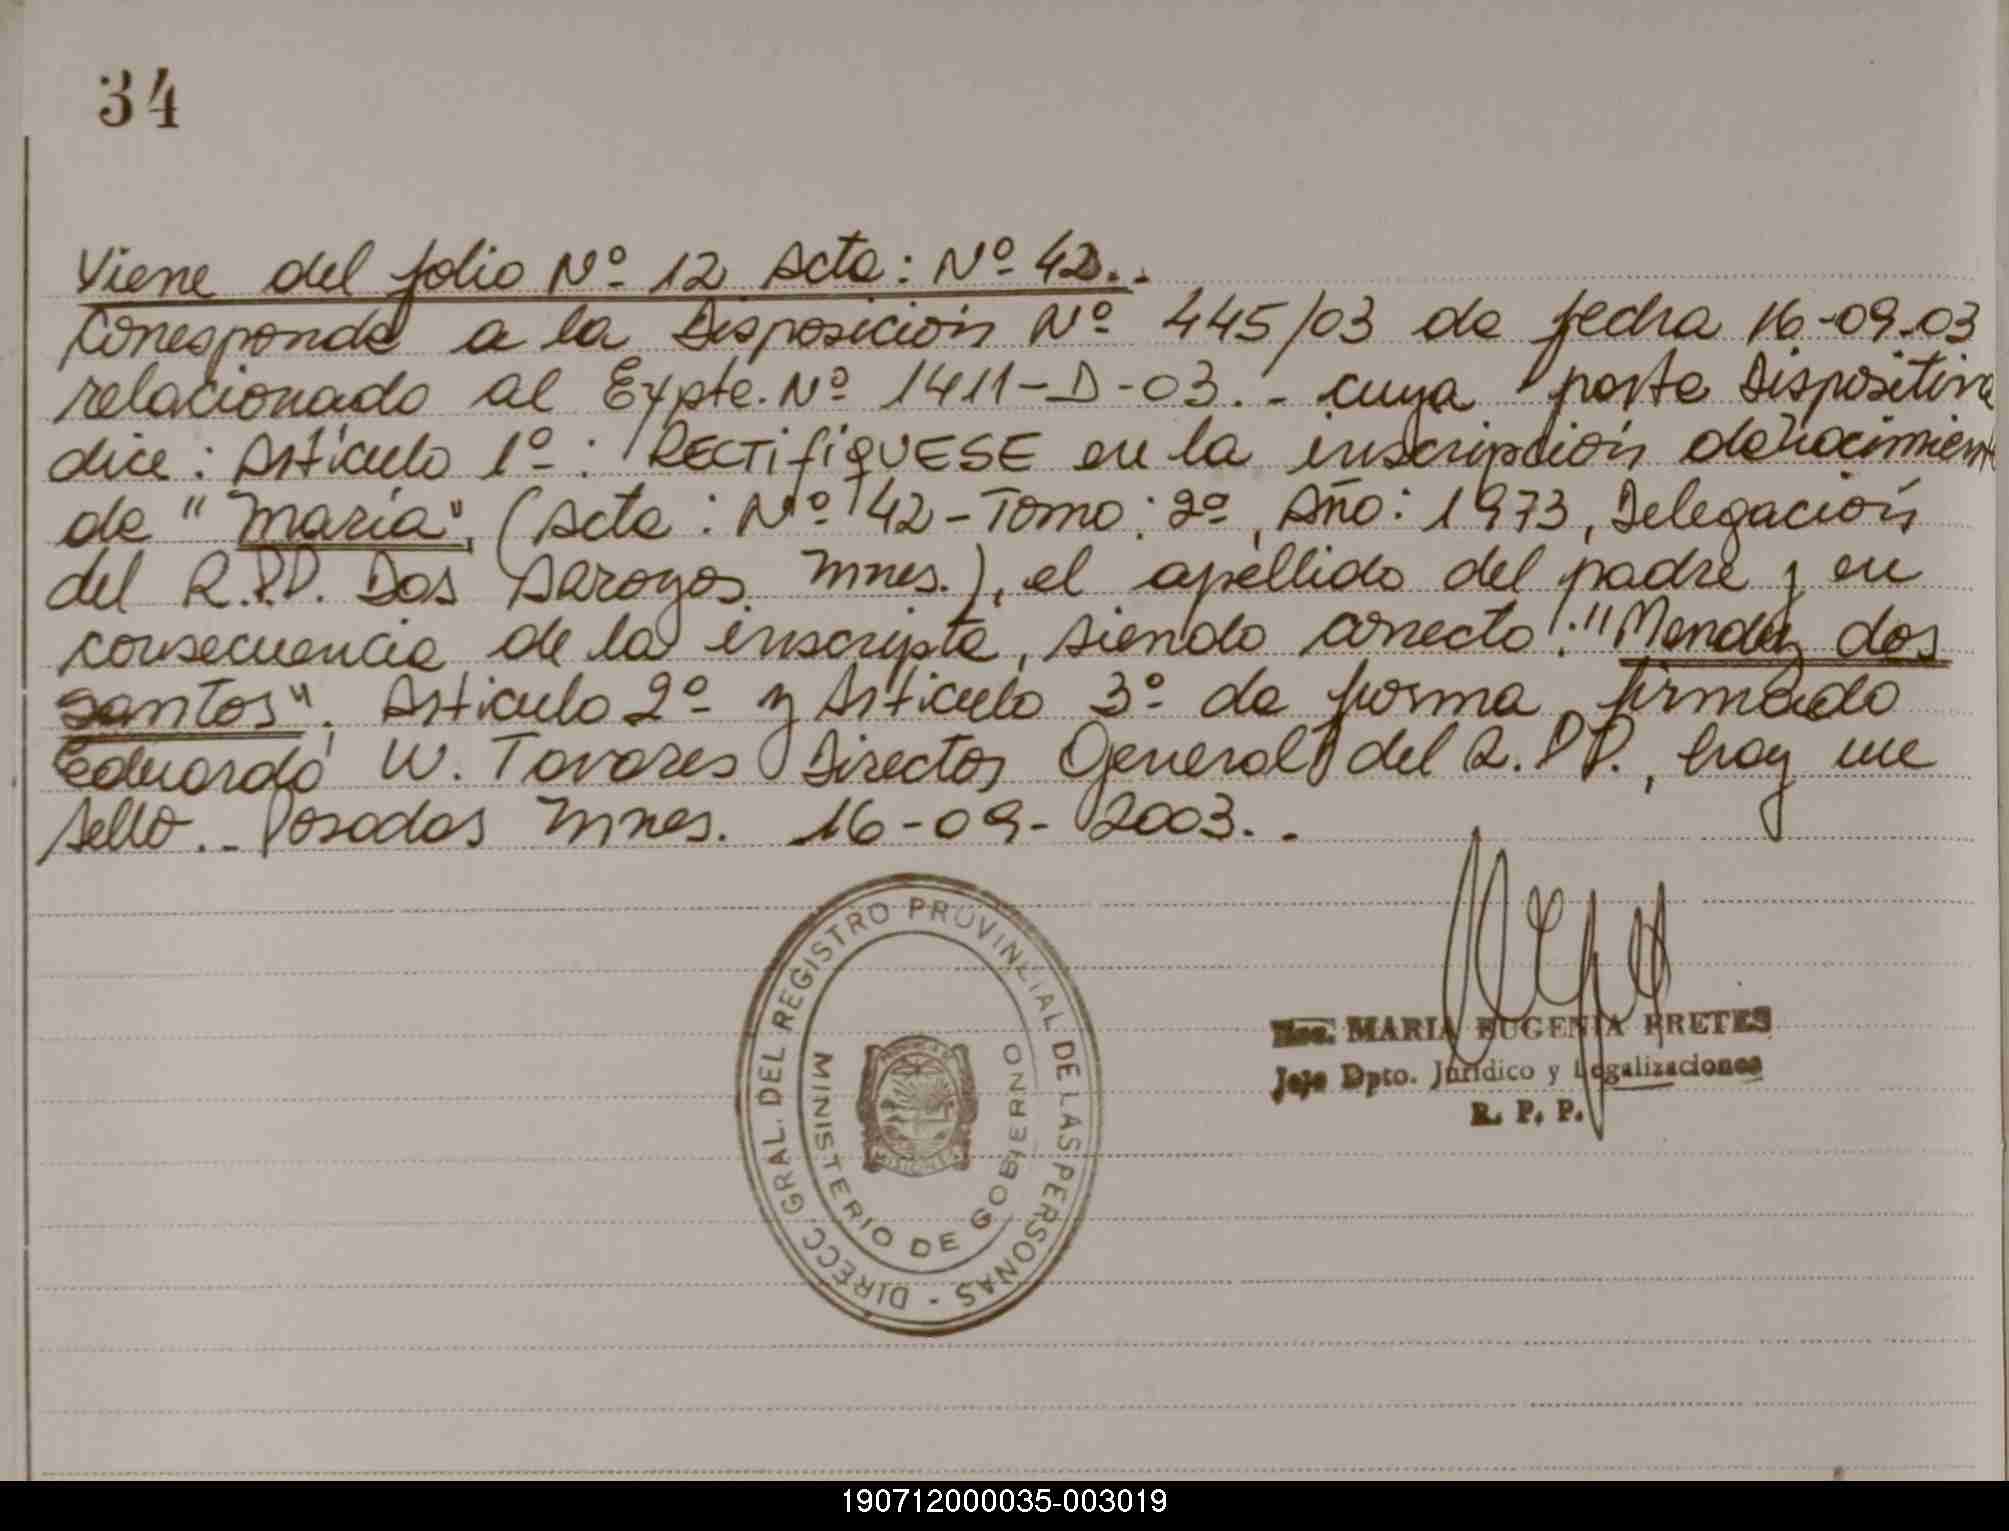 34
Viene del folio Nº 12 Acta: Nº 42.-
Corresponde a la Disposición Nº 445/03 de fecha 16-09-03
relacionado al Expte. Nº 1411-D-03.- cuya parte Dispositiva
dice: Artículo 1º: RECTIFIQUESE en la inscripción de nacimiento
de "María", (Acta: Nº 42-Tomo: 2º, Año: 1973, Delegación
del R.P.P. Dos Arroyos Mnes.), el apellido del padre y en
consecuencia de la inscripta, siendo correcto: "Mendez dos
Santos". Articulo 2º y Articulo 3º de forma, firmado
Eduardo W. Tavares Director General del R.P.P., hay un
sello.- Posadas Mnes. 16-09-2003.-
DIRECC. GRAL. DEL REGISTRO PROVINCIAL DE LAS PERSONAS -
MINISTERIO DE GOBIERNO
MISIONES
Esc. MARIA EUGENIA PRETES
Jefe Dpto. Jurídico y Legalizaciones
R. P. P.
190712000035-003019